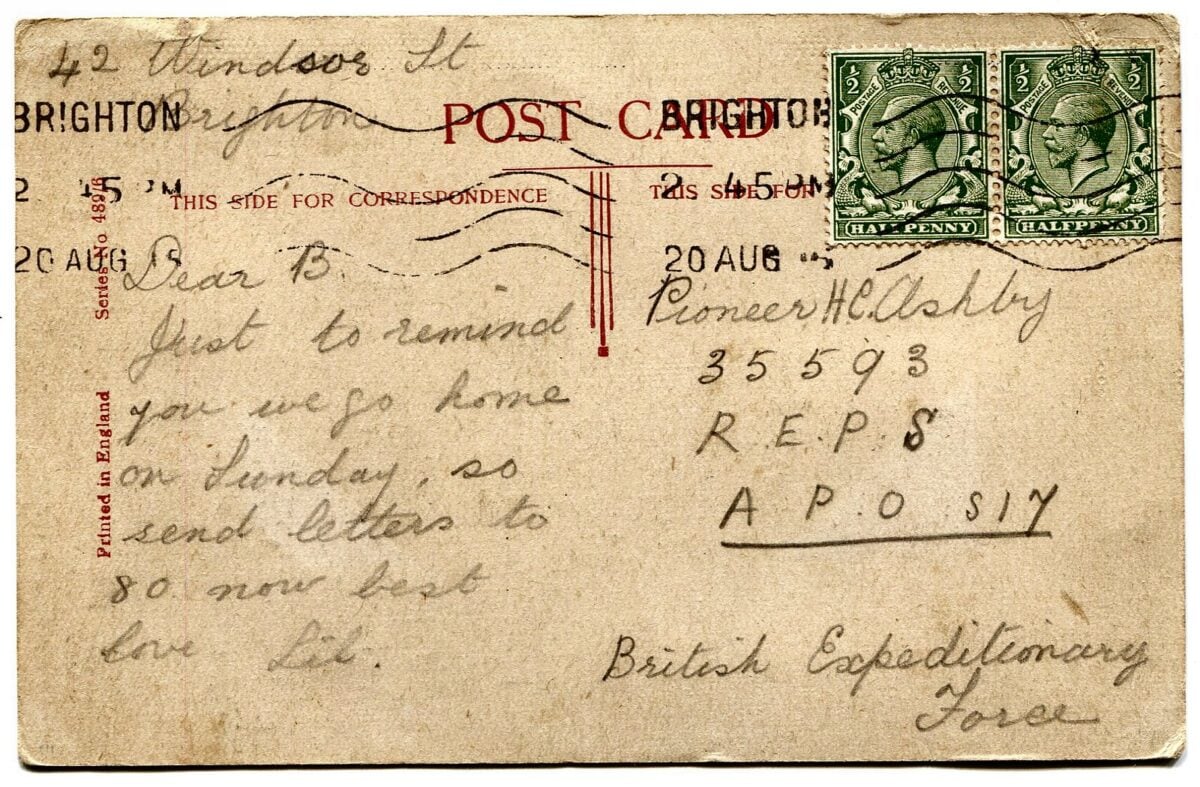 42 Windsor St
Brighton
BRIGHTON
2 45 PM
20 AUG 15
POST CARD
BRIGHTON
2. 45 PM
20 AUG
½ ½
POSTAGE REVENUE
HALFPENNY
½ ½
POSTAGE REVENUE
HALFPENNY
THIS SIDE FOR CORRESPONDENCE
THIS SIDE FOR
Series No 4897/6
Printed in England
Dear B.
Just to remind
you we go home
on Sunday, so
send letters to
80 now best
love Lil.
Pioneer H.C. Ashby
35593
R.E.P.S
A P.O S17
British Expeditionary
Force